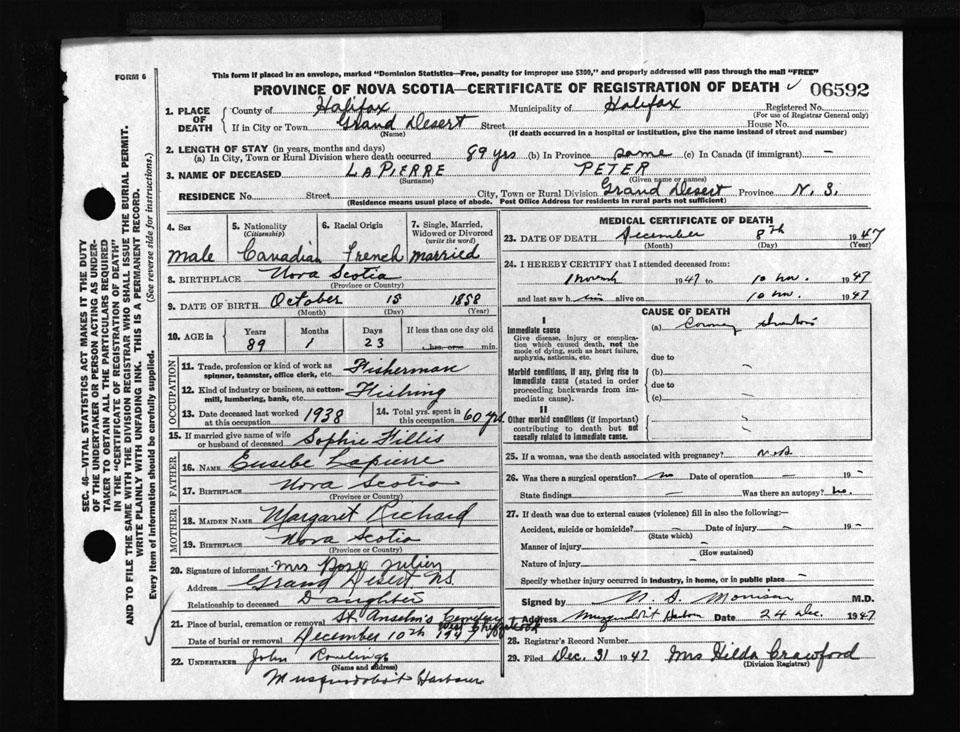 FORM 6
This form if placed in an envelope, marked "Dominion Statistics—Free, penalty for improper use $300," and properly addressed will pass through the mail "FREE"
PROVINCE OF NOVA SCOTIA—CERTIFICATE OF REGISTRATION OF DEATH ✓ 06592
1. PLACE OF DEATH County of Halifax Municipality of Halifax Registered No.
(For use of Registrar General only)
If in City or Town Grand Desert Street House No.
(Name) (If death occurred in a hospital or institution, give the name instead of street and number)
2. LENGTH OF STAY (in years, months and days)
(a) In City, Town or Rural Division where death occurred 89 yrs (b) In Province same (c) In Canada (if immigrant) —
3. NAME OF DECEASED LA PIERRE PETER
(Surname) (Given name or names)
RESIDENCE No. Street City, Town or Rural Division Grand Desert Province N. S.
(Residence means usual place of abode. Post Office Address for residents in rural parts not sufficient)
4. Sex 5. Nationality (Citizenship) 6. Racial Origin 7. Single, Married, Widowed or Divorced (write the word)
Male Canadian French Married
8. BIRTHPLACE Nova Scotia
(Province or Country)
9. DATE OF BIRTH October 15 1858
(Month) (Day) (Year)
10. AGE in Years Months Days If less than one day old
89 1 23 hrs. or min.
OCCUPATION
11. Trade, profession or kind of work as spinner, teamster, office clerk, etc. Fisherman
12. Kind of industry or business, as cotton-mill, lumbering, bank, etc. Fishing
13. Date deceased last worked at this occupation 1938 14. Total yrs. spent in this occupation 60 yrs.
15. If married give name of wife or husband of deceased Sophie Fillis
FATHER
16. NAME Eusebe Lapierre
17. BIRTHPLACE Nova Scotia
(Province or Country)
MOTHER
18. MAIDEN NAME Margaret Richard
19. BIRTHPLACE Nova Scotia
(Province or Country)
20. Signature of informant Mrs Rose Julien
Address Grand Desert N.S.
Relationship to deceased Daughter
21. Place of burial, cremation or removal St. Anselm's Cemetery West Chezzetcook
Date of burial or removal December 10th 1947
22. UNDERTAKER John Rowlings
(Name and address)
Musquodoboit Harbour
MEDICAL CERTIFICATE OF DEATH
23. DATE OF DEATH December 8th 1947
(Month) (Day) (Year)
24. I HEREBY CERTIFY that I attended deceased from:
1 November 1947 to 10 Nov. 1947
and last saw him alive on 10 Nov. 1947
CAUSE OF DEATH
I
Immediate cause (a) Coronary
Give disease, injury or complication which caused death, not the mode of dying, such as heart failure, asphyxia, asthenia, etc.
due to
Morbid conditions, if any, giving rise to immediate cause (stated in order proceeding backwards from immediate cause).
(b)
due to
(c)
II
Other morbid conditions (if important) contributing to death but not causally related to immediate cause.
25. If a woman, was the death associated with pregnancy?
26. Was there a surgical operation? no Date of operation — 19 -
State findings — Was there an autopsy? no.
27. If death was due to external causes (violence) fill in also the following:—
Accident, suicide or homicide? — Date of injury — 19 -
(State which)
Manner of injury
(How sustained)
Nature of injury
Specify whether injury occurred in industry, in home, or in public place —
Signed by Morrison M.D.
Address Date 24 Dec. 1947
28. Registrar's Record Number
29. Filed Dec. 31 1947 Mrs Hilda Crawford
(Division Registrar)
SEC. 46—VITAL STATISTICS ACT MAKES IT THE DUTY
OF THE UNDERTAKER OR PERSON ACTING AS UNDERTAKER
TO OBTAIN ALL THE PARTICULARS REQUIRED
IN THE "CERTIFICATE OF REGISTRATION OF DEATH"
AND TO FILE THE SAME WITH THE DIVISION REGISTRAR WHO SHALL ISSUE THE BURIAL PERMIT.
WRITE PLAINLY WITH UNFADING INK. THIS IS A PERMANENT RECORD.
Every item of information should be carefully supplied. (See reverse side for instructions.)